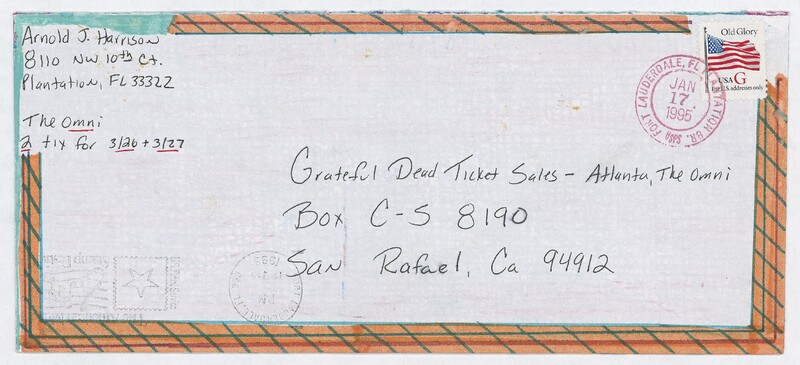 Arnold J. Harrison
8110 NW 10th Ct.
Plantation, FL 33322
The Omni
2 tix for 3/26 + 3/27
Old Glory
USA G
For U.S. addresses only
FORT LAUDERDALE, FL
JAN
17
1995
Grateful Dead Ticket Sales - Atlanta, The Omni
Box C-S 8190
San Rafael, Ca 94912